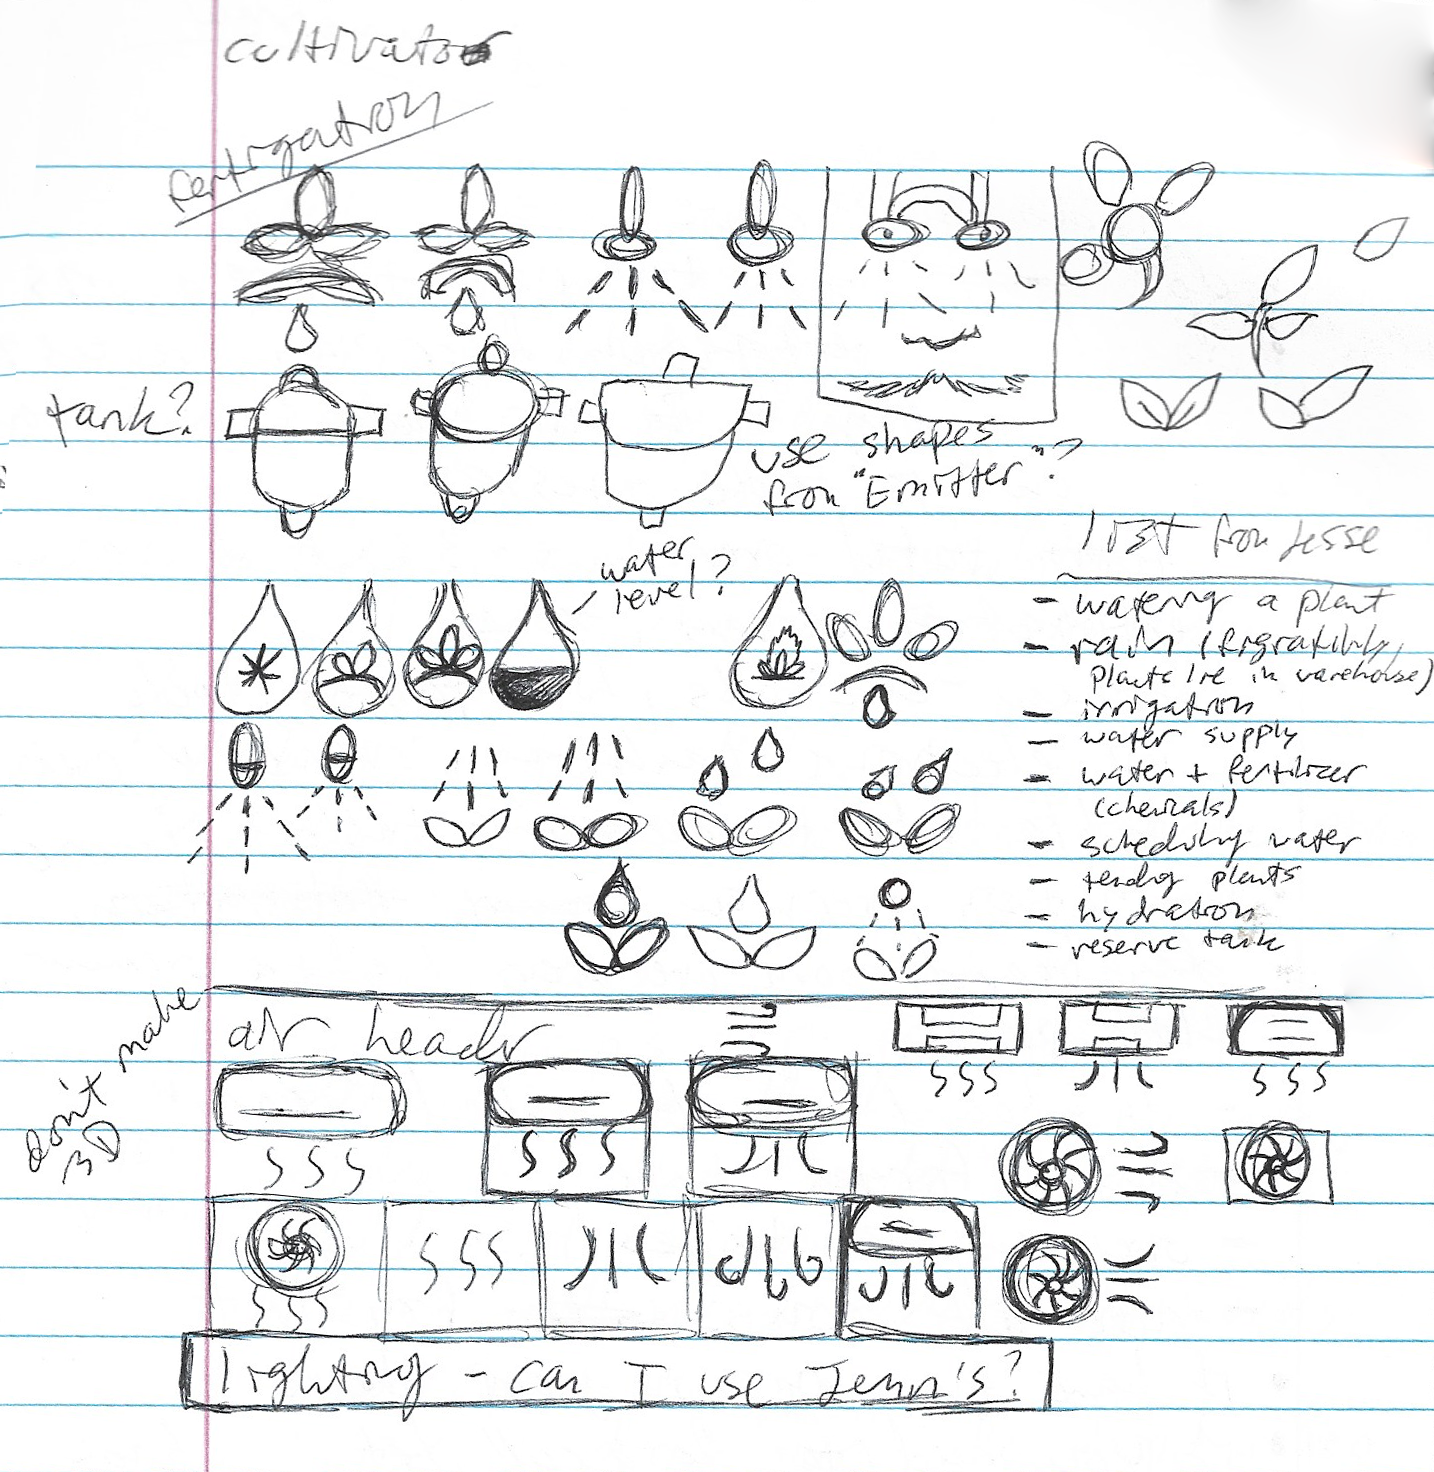 cultivator
fertigation
tank?
use shapes
from "Emitter"?
water
level?
list from Jesse
- watering a plant
- rain (figuratively,
plants're in warehouse)
- irrigation
- water supply
- water + fertilizer
(chemicals)
- scheduling water
- tending plants
- hydration
- reserve tank
don't make
3D
air handlr
lighting - can I use Jenn's?